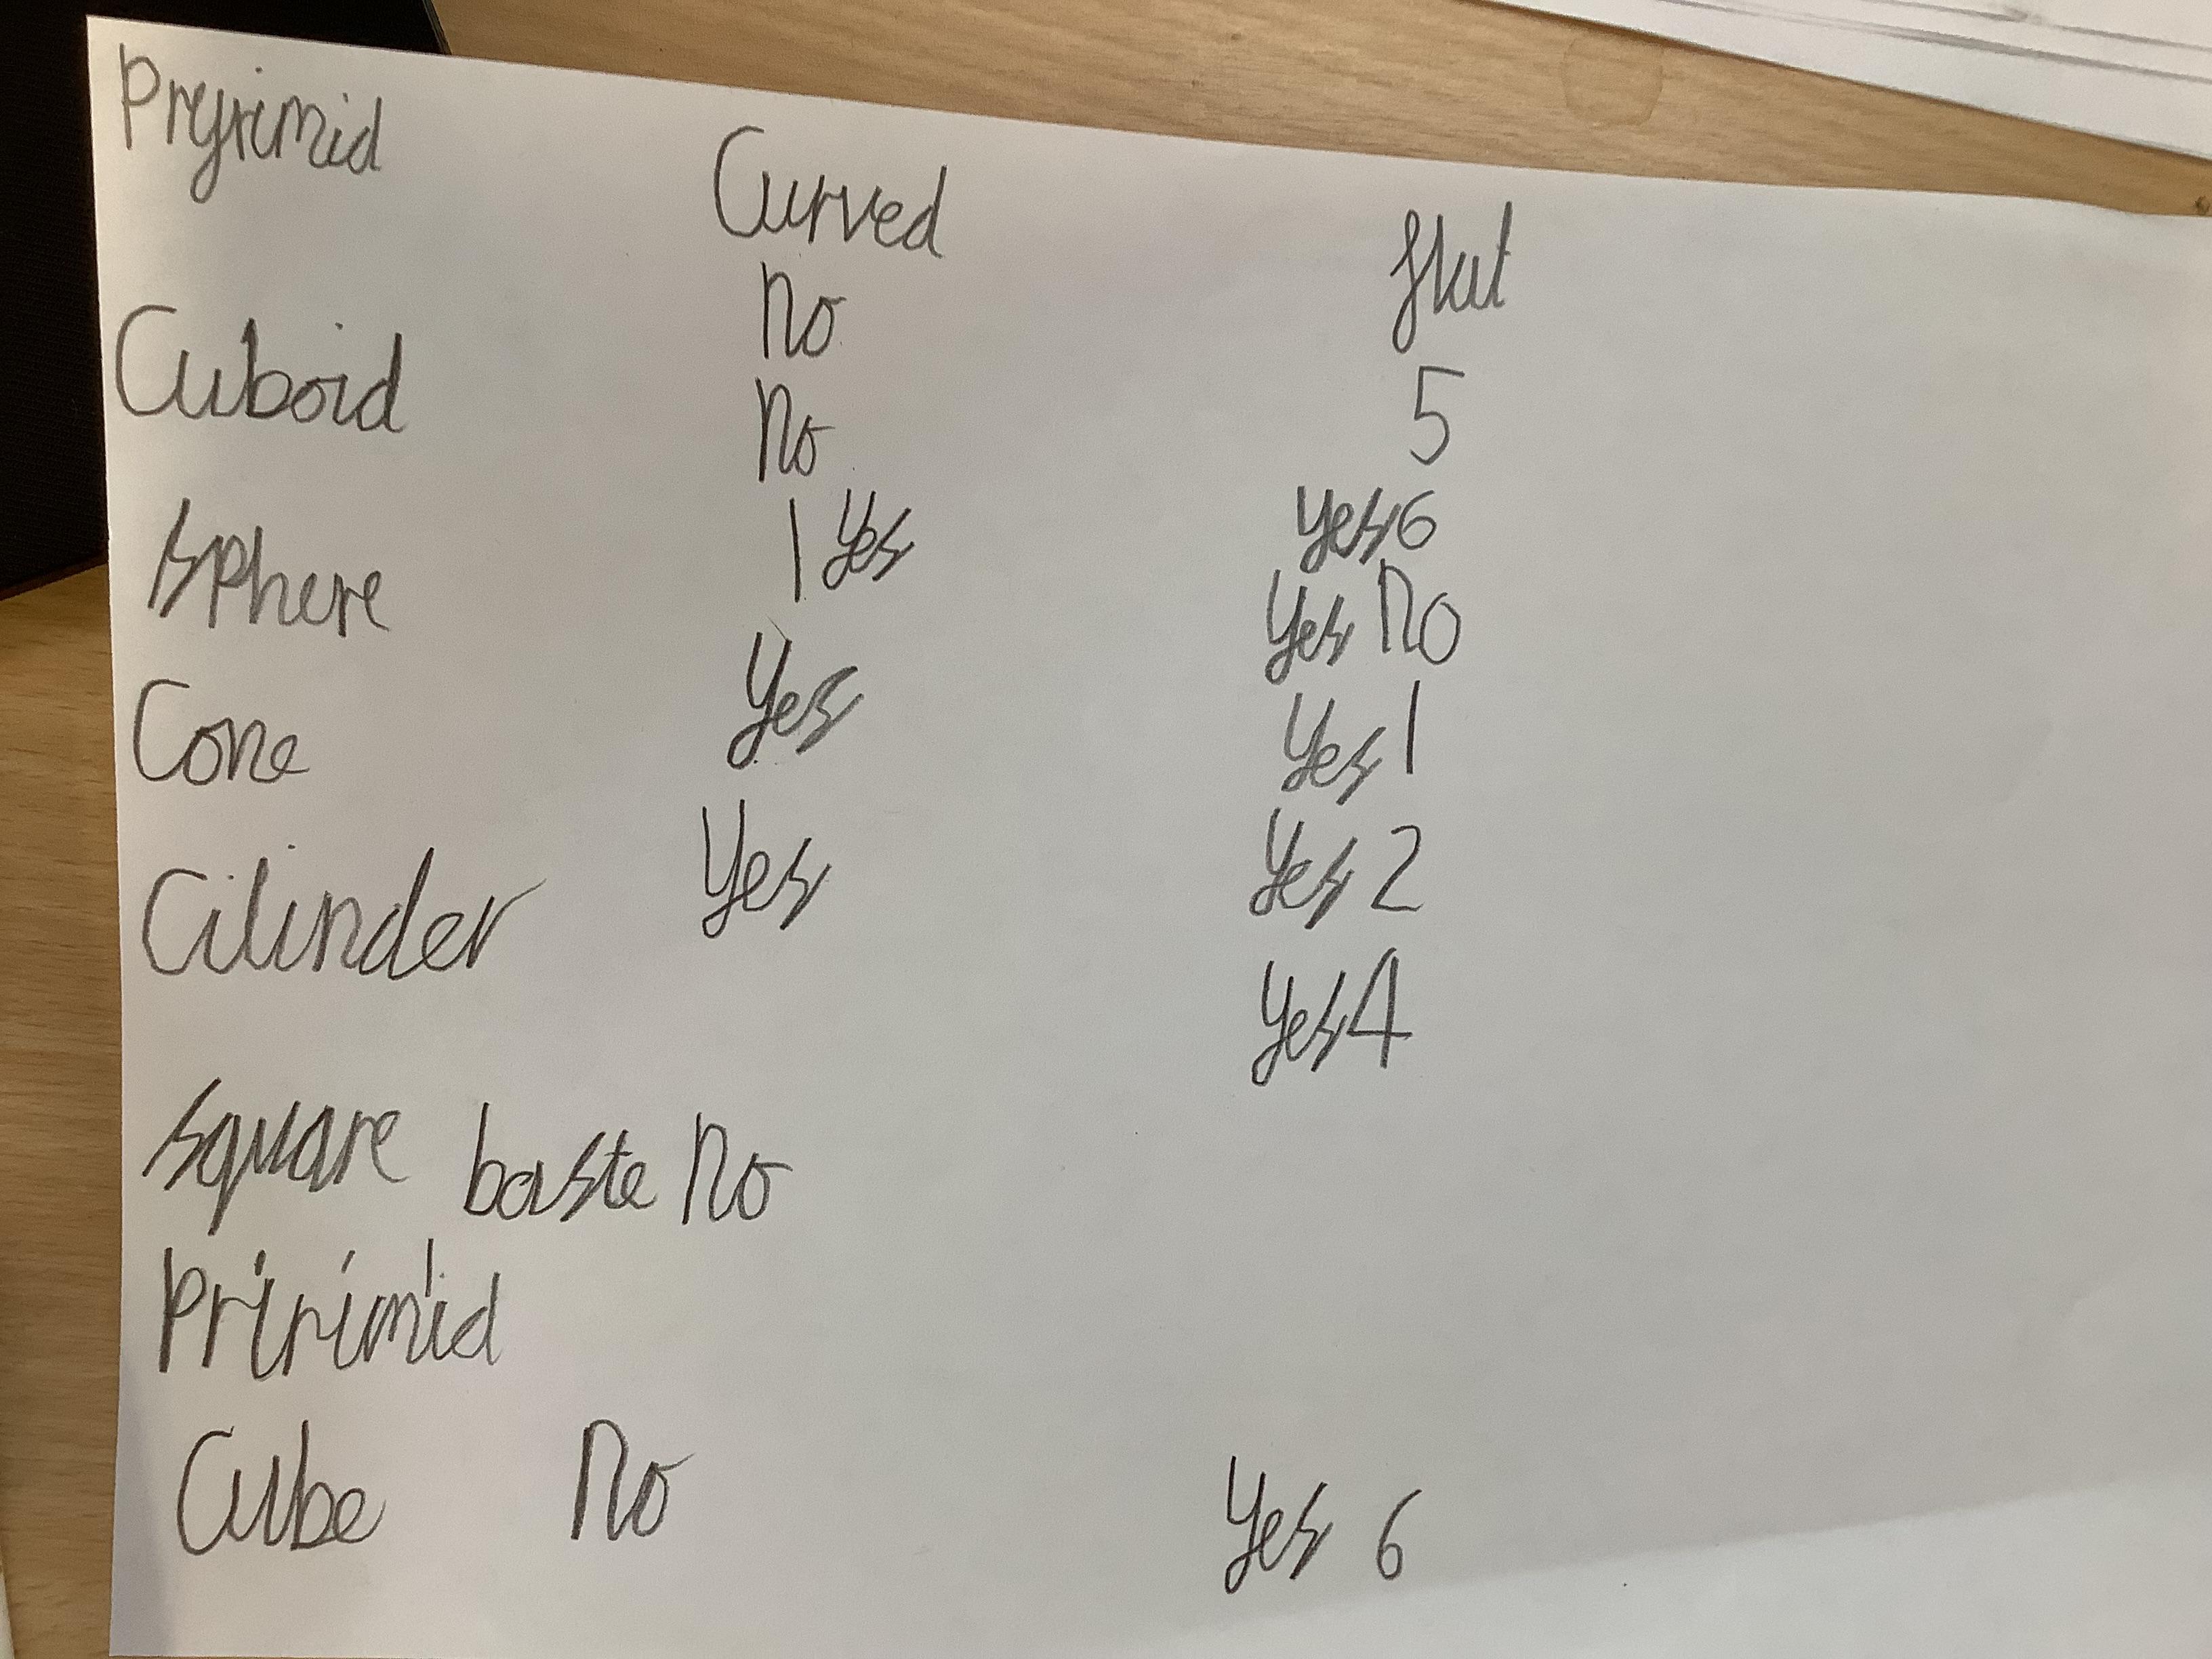 Pryrimid
Curved
flat
no
Cuboid
5
no
yes 6
sphere
1 yes
yes no
Cone
yes
yes 1
Cilinder
yes
yes 2
yes 4
square baste no
Pririmid
Cube no
yes 6